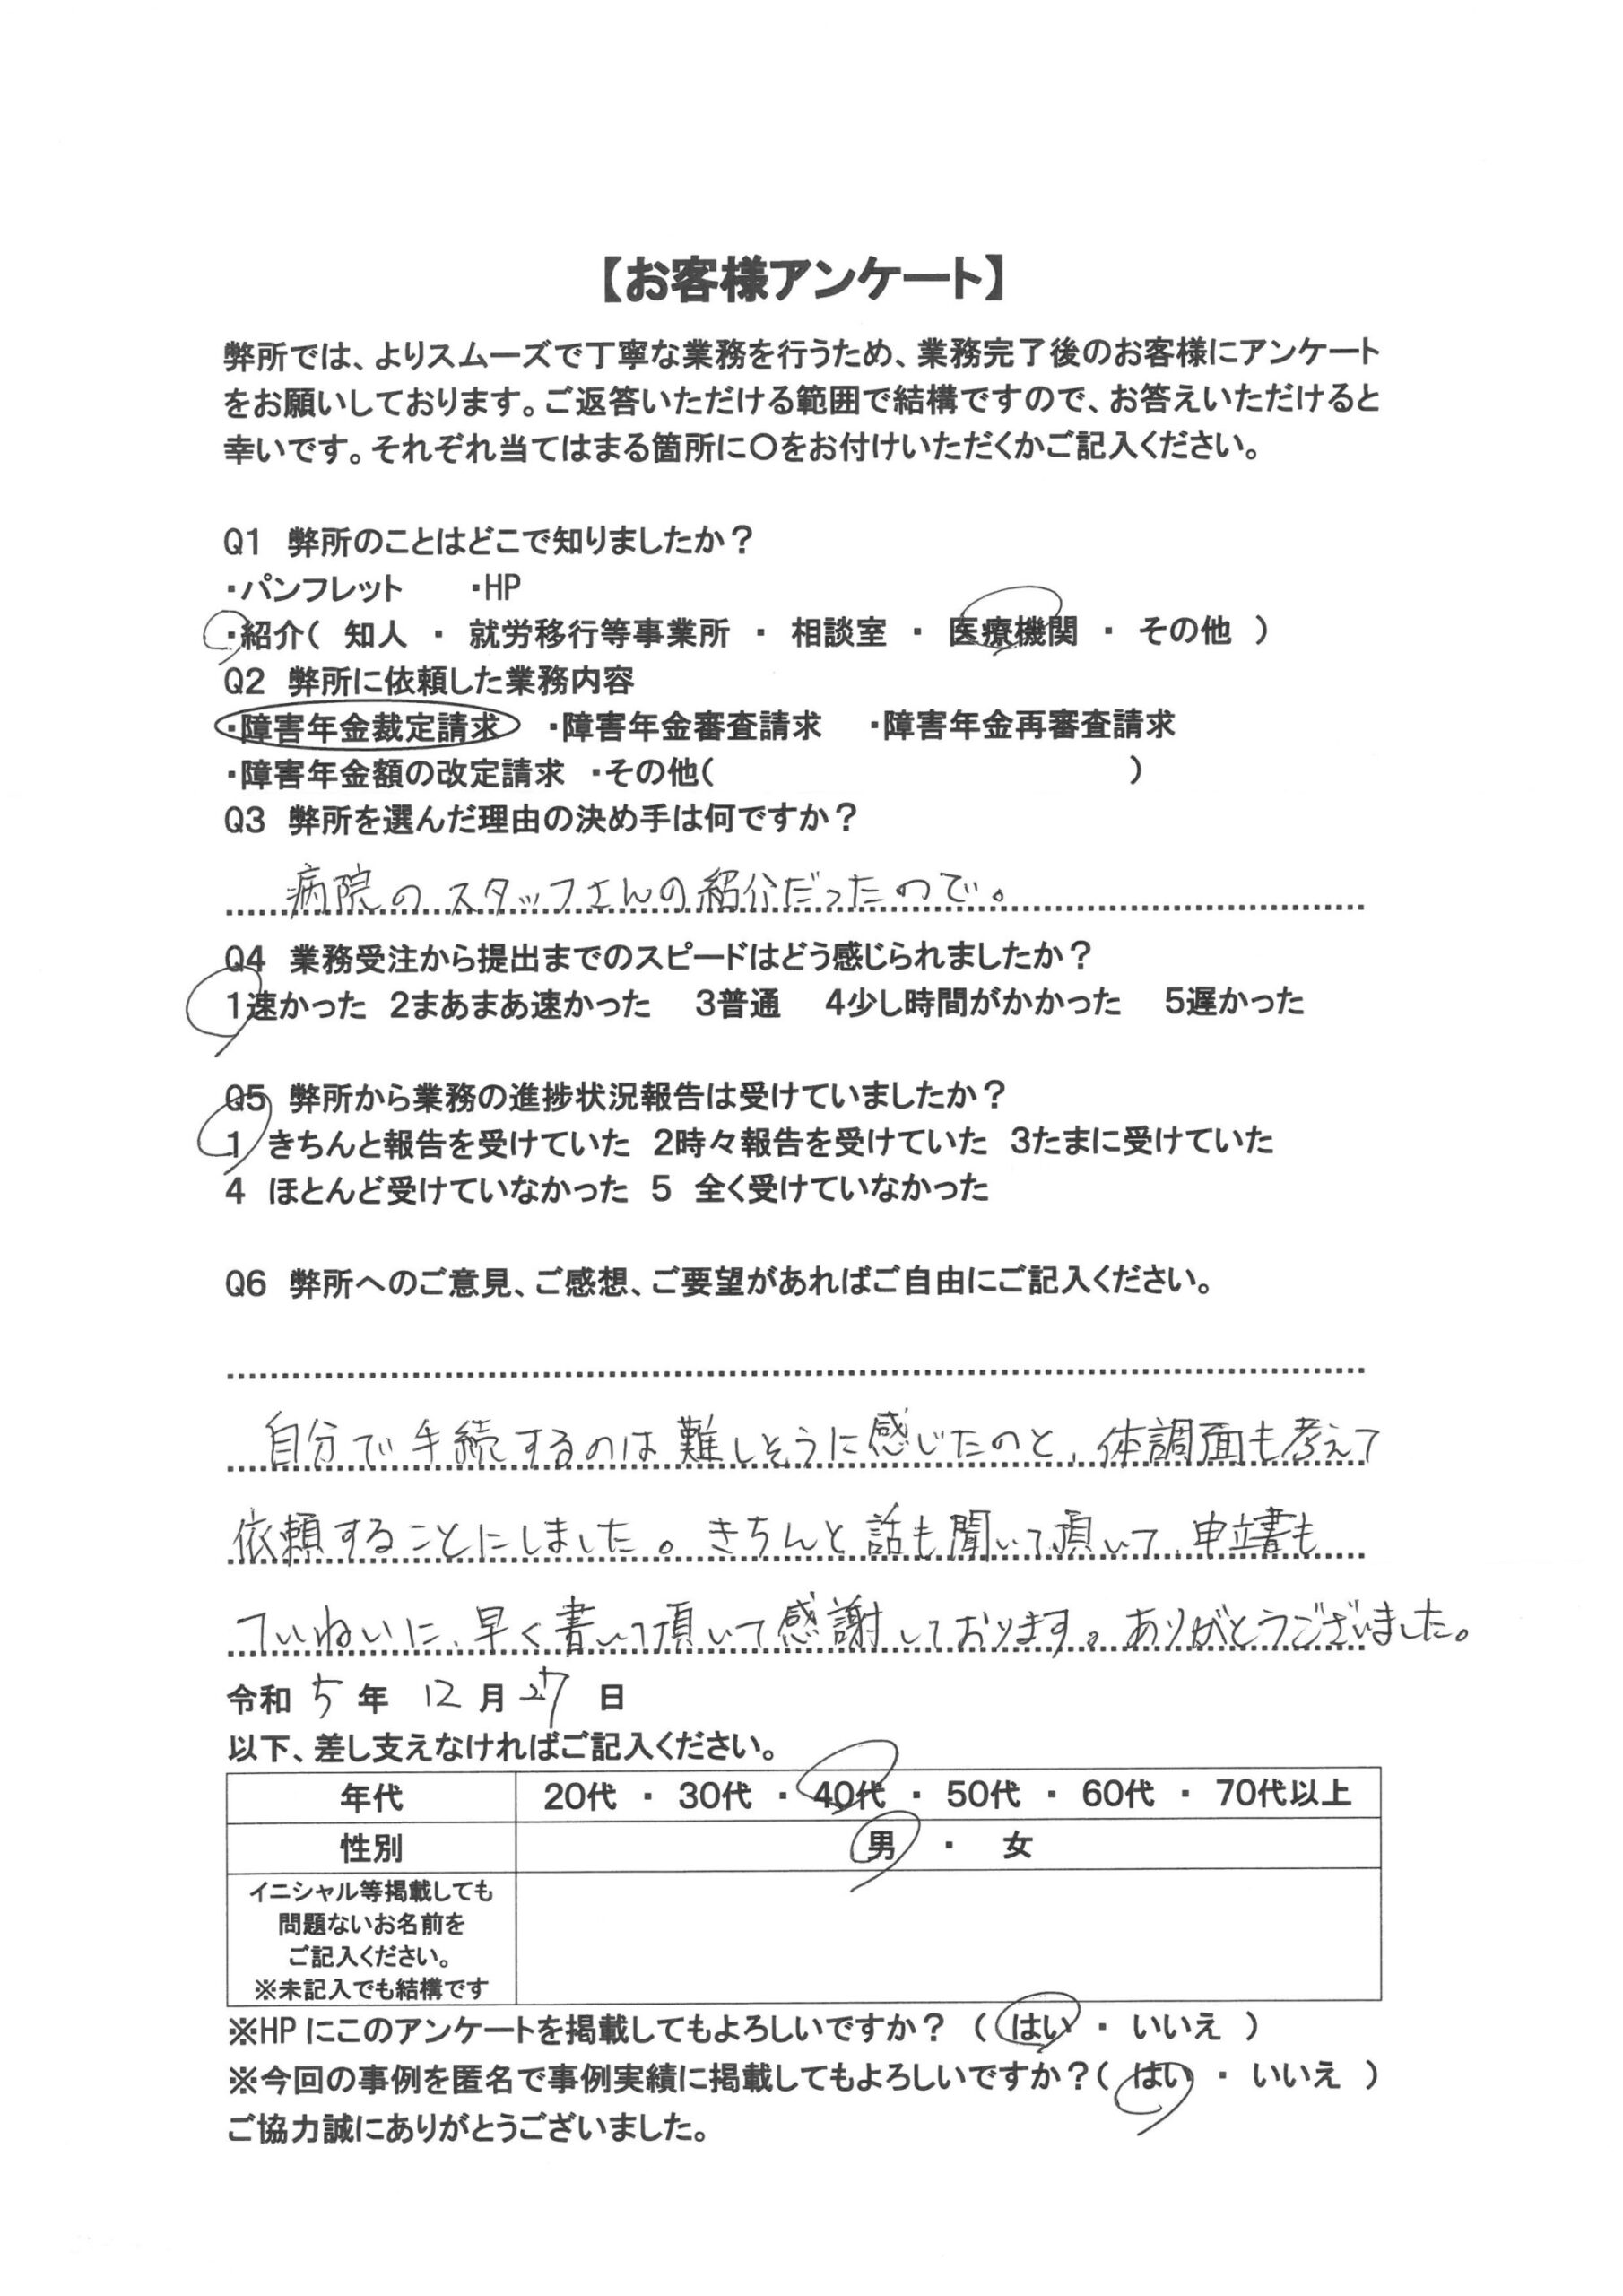 【お客様アンケート】
弊所では、よりスムーズで丁寧な業務を行うため、業務完了後のお客様にアンケート
をお願いしております。ご返答いただける範囲で結構ですので、お答えいただけると
幸いです。それぞれ当てはまる箇所に〇をお付けいただくかご記入ください。
Q1 弊所のことはどこで知りましたか？
・パンフレット ・HP
・紹介（ 知人 ・ 就労移行等事業所 ・ 相談室 ・ 医療機関 ・ その他 ）
Q2 弊所に依頼した業務内容
・障害年金裁定請求 ・障害年金審査請求 ・障害年金再審査請求
・障害年金額の改定請求 ・その他（ ）
Q3 弊所を選んだ理由の決め手は何ですか？
病院のスタッフさんの紹介だったので。
Q4 業務受注から提出までのスピードはどう感じられましたか？
1速かった 2まあまあ速かった 3普通 4少し時間がかかった 5遅かった
Q5 弊所から業務の進捗状況報告は受けていましたか？
1 きちんと報告を受けていた 2時々報告を受けていた 3たまに受けていた
4 ほとんど受けていなかった 5 全く受けていなかった
Q6 弊所へのご意見、ご感想、ご要望があればご自由にご記入ください。
自分で手続するのは難しそうに感じたのと、体調面も考えて
依頼することにしました。きちんと話も聞いて頂いて、申立書も
ていねいに、早く書いて頂いて感謝しております。ありがとうございました。
令和 5 年 12 月 27 日
以下、差し支えなければご記入ください。
年代 20代 ・ 30代 ・ 40代 ・ 50代 ・ 60代 ・ 70代以上
性別 男 ・ 女
イニシャル等掲載しても
問題ないお名前を
ご記入ください。
※未記入でも結構です
※HPにこのアンケートを掲載してもよろしいですか？（ はい ・ いいえ ）
※今回の事例を匿名で事例実績に掲載してもよろしいですか？（ はい ・ いいえ ）
ご協力誠にありがとうございました。